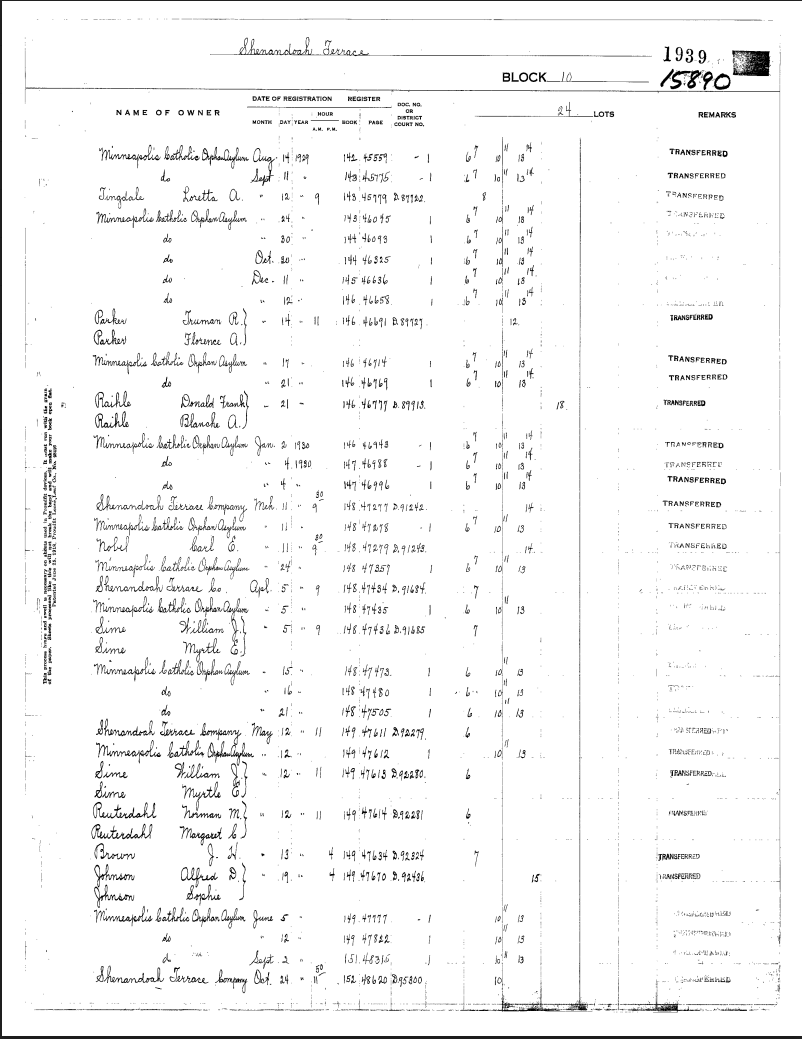 Shenandoah Terrace
1939
BLOCK 10
15890
24 LOTS
NAME OF OWNER DATE OF REGISTRATION REGISTER DOC. NO. OR DISTRICT COURT NO. REMARKS
MONTH DAY YEAR HOUR A.M. P.M. BOOK PAGE
Minneapolis Catholic Orphan Asylum Aug. 14 1929 142 45559 - 1 6 7 10 11 13 14 TRANSFERRED
do Sept 11 " 143 45775 - 1 6 7 10 11 13 14 TRANSFERRED
Tingdale Loretta A. " 12 " 9 143 45779 D.87722 8 TRANSFERRED
Minneapolis Catholic Orphan Asylum " 24 " 143 46045 1 6 7 10 11 13 14 TRANSFERRED
do " 30 144 46093 1 6 7 10 11 13 14
do Oct. 30 " 144 46325 1 6 7 10 11 13 14
do Dec. 11 " 145 46636 1 6 7 10 11 13 14
do " 12 146 46658 1 6 7 10 11 13 14 TRANSFERRED
Parker Truman R. } " 14 " 11 146 46691 D.89727 12 TRANSFERRED
Parker Florence A. }
Minneapolis Catholic Orphan Asylum " 17 " 146 46714 1 6 7 10 11 13 14 TRANSFERRED
do " 21 " 146 46769 1 6 7 10 11 13 14 TRANSFERRED
Raihle Donald Frank } " 21 " 146 46777 D.89913 18 TRANSFERRED
Raihle Blanche A. }
Minneapolis Catholic Orphan Asylum Jan. 2 1930 146 46943 - 1 6 7 10 11 13 14 TRANSFERRED
do " 4 1930 147 46988 - 1 6 7 10 11 13 14 TRANSFERRED
do " 4 " 147 46996 1 6 7 10 11 13 14 TRANSFERRED
Shenandoah Terrace Company Mch. 11 " 9 30 148 47277 D.91242 14 TRANSFERRED
Minneapolis Catholic Orphan Asylum " 11 " 148 47278 - 1 6 7 10 11 13 TRANSFERRED
Nobel Carl E. " 11 " 9 30 148 47279 D.91243 14 TRANSFERRED
Minneapolis Catholic Orphan Asylum " 24 " 148 47357 1 6 7 10 11 13 TRANSFERRED
Shenandoah Terrace Co Apl. 5 " 9 148 47434 D.91684 7
Minneapolis Catholic Orphan Asylum " 5 " 148 47435 1 6 10 11 13
Sime William J. } " 5 " 9 148 47436 D.91685 7
Sime Myrtle E. }
Minneapolis Catholic Orphan Asylum " 15 " 148 47473 1 6 10 11 13
do " 16 " 148 47480 1 6 10 11 13
do " 21 " 148 47505 1 6 10 11 13
Shenandoah Terrace Company May 12 " 11 149 47611 D.92279 6 TRANSFERRED
Minneapolis Catholic Orphan Asylum " 12 " 149 47612 1 10 11 13 TRANSFERRED
Sime William J. } " 12 " 11 149 47613 D.92280 6 TRANSFERRED
Sime Myrtle E. }
Reuterdahl Norman M. } " 12 " 11 149 47614 D.92281 6 TRANSFERRED
Reuterdahl Margaret C }
Brown J. H. " 13 " 4 149 47634 D.92324 7 TRANSFERRED
Johnson Alfred D. } " 19 " 4 149 47670 D.92436 15 TRANSFERRED
Johnson Sophie }
Minneapolis Catholic Orphan Asylum June 5 " 149 47777 - 1 10 11 13 TRANSFERRED
do " 12 " 149 47822 1 10 11 13 TRANSFERRED
d Sept. 2 " 151 48315 1 10 11 13 TRANSFERRED
Shenandoah Terrace Company Oct. 24 " 11 50 152 48620 D.95300 10 TRANSFERRED